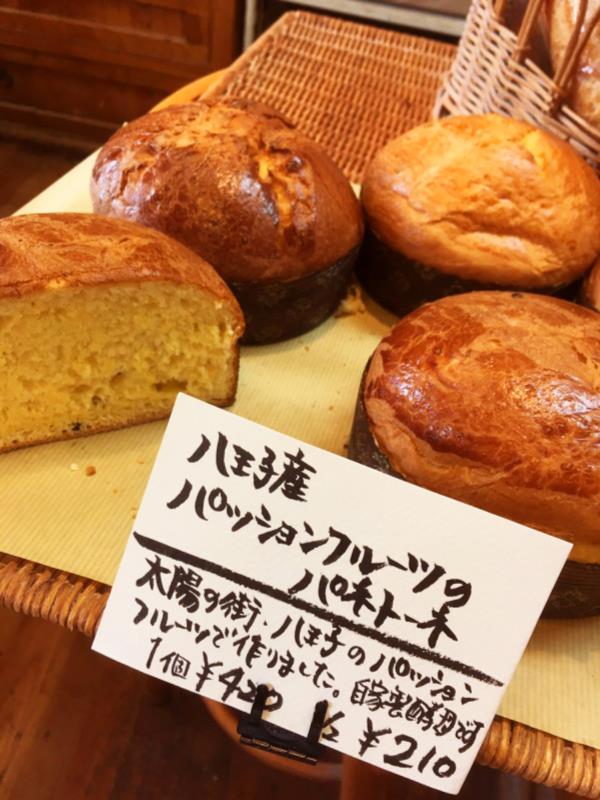 八王子産
パッションフルーツの
パネトーネ
太陽の街、八王子のパッション
フルーツで作りました。自家製酵母
1個 ¥420 ½ ¥210